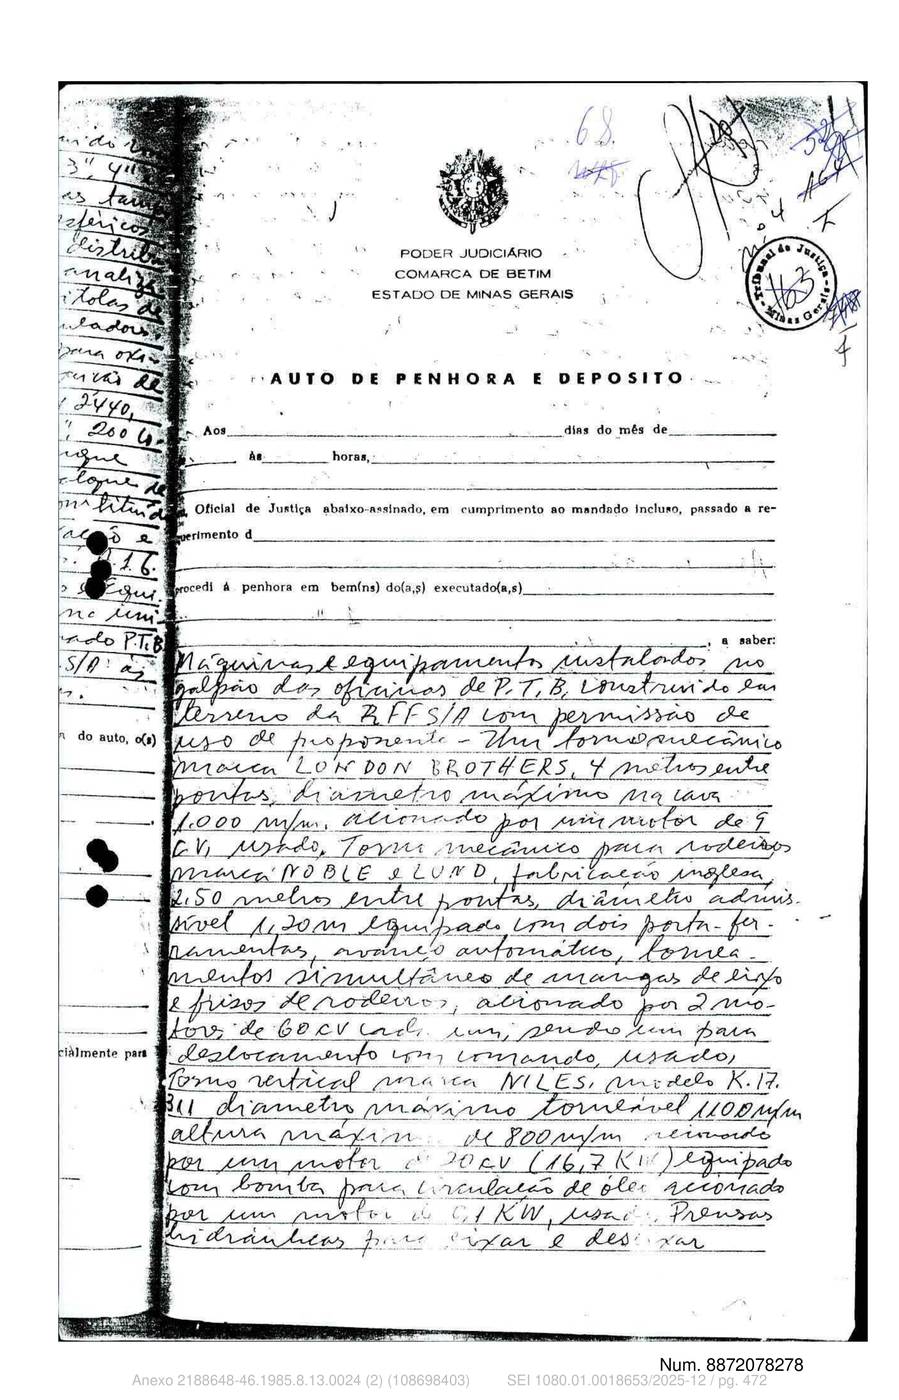 68.
PODER JUDICIÁRIO
COMARCA DE BETIM
ESTADO DE MINAS GERAIS
Tribunal de Justiça
Minas Gerais
163
AUTO DE PENHORA E DEPOSITO
Aos dias do mês de
às horas,
Oficial de Justiça abaixo-assinado, em cumprimento ao mandado incluso, passado a re-
querimento d
procedi à penhora em bem(ns) do(a,s) executado(a,s)
, a saber:
Máquinas e equipamentos instalados no
galpão das oficinas de P.T.B. construido em
terreno da RFFS/A com permissão de
uso de proponente - Um torno mecânico
marca LONDON BROTHERS, 4 metros entre
pontas, diametro máximo na cava
1.000 m/m, acionado por um motor de 9
CV, usado, Torno mecânico para rodeiros
marca NOBLE e LUND, fabricação inglesa,
2,50 metros entre pontas, diâmetro admis-
sível 1,20 m equipado com dois porta-fer-
ramentas, avanço automático, tornea-
mentos simultâneo de mangas de eixo
e frisos de rodeiros, acionado por 2 mo-
tores de 60 CV cada um, sendo um para
deslocamento com comando, usado,
Torno vertical marca NILES, modelo K.17.
311 diametro máximo torneável 1100 m/m
altura máxima de 800 m/m acionado
por um motor de 20 CV (16,7 KW) equipado
com bomba para circulação de óleo acionado
por um motor de 0,1 KW, usado, Prensas
hidráulicas para eixar e deseixar
3", 4"
as tam
sféricos
distrib
analiza
itolas de
para oxi-
2440,
200
oque de
onstituid
ação e
1.6.
Equi.
P.T.B
S/A: as
do auto, o(s)
cialmente para
Num. 8872078278
Anexo 2188648-46.1985.8.13.0024 (2) (108698403) SEI 1080.01.0018653/2025-12 / pg. 472